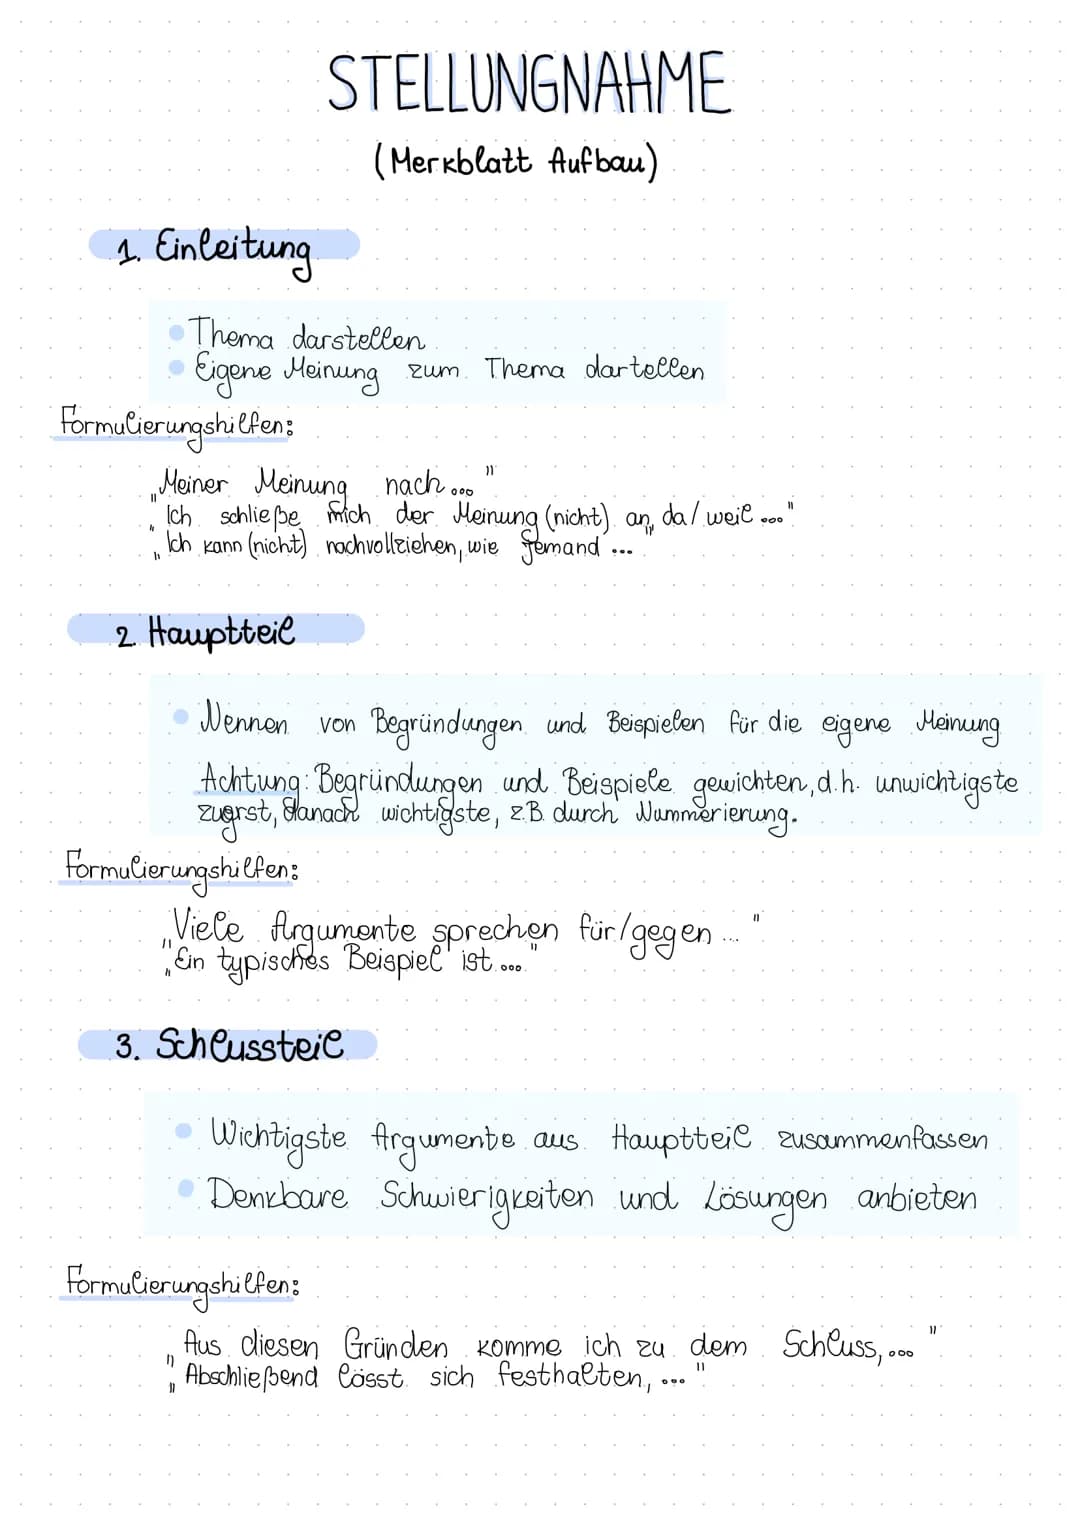 STELLUNGNAHME
(Merkblatt Aufbau)
1. Einleitung
• Thema darstellen
• Eigene Meinung zum Thema dartellen
Formulierungshilfen:
„Meiner Meinung nach..."
„Ich schließe mich der Meinung (nicht) an, da/weil ..."
„Ich kann (nicht) nachvollziehen, wie jemand ..."
2. Hauptteil
• Nennen von Begründungen und Beispielen für die eigene Meinung
Achtung: Begründungen und Beispiele gewichten, d.h. unwichtigste
zuerst, danach wichtigste, z.B. durch Nummerierung.
Formulierungshilfen:
„Viele Argumente sprechen für/gegen ..."
„Ein typisches Beispiel ist ..."
3. Schlussteil
• Wichtigste Argumente aus Hauptteil zusammenfassen
• Denkbare Schwierigkeiten und Lösungen anbieten
Formulierungshilfen:
„Aus diesen Gründen komme ich zu dem Schluss, ..."
„Abschließend lässt sich festhalten, ..."